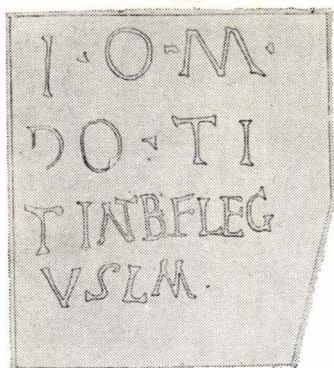 I·O·M·
DO·TI
TINBFLEG
VSLM·